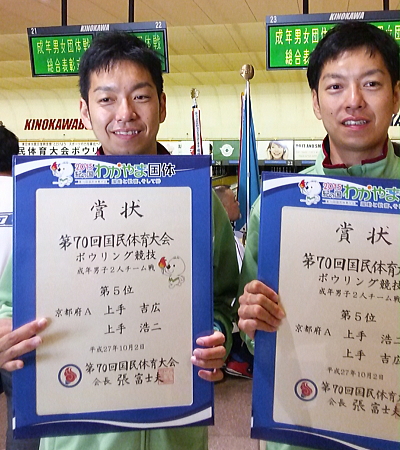 21
22
成年男女団体戦
総合表彰式
23
成年男女団体
総合表彰
KINOKAWA
KINOKAWA
民体育大会ボウリング競
わかやま国体
賞状
第70回国民体育大会
ボウリング競技
成年男子2人チーム戦
第5位
京都府A 上手 吉広
上手 浩二
平成27年10月2日
第70回国民体育大会
会長 張 富士夫
わかやま国
賞状
第70回国民体育
ボウリング競技
成年男子2人チーム
第5位
京都府A 上手 浩
上手 吉
平成27年10月2日
第70回国民体育
会長 張 富士